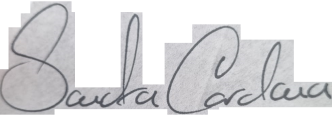 Sandra Cardana